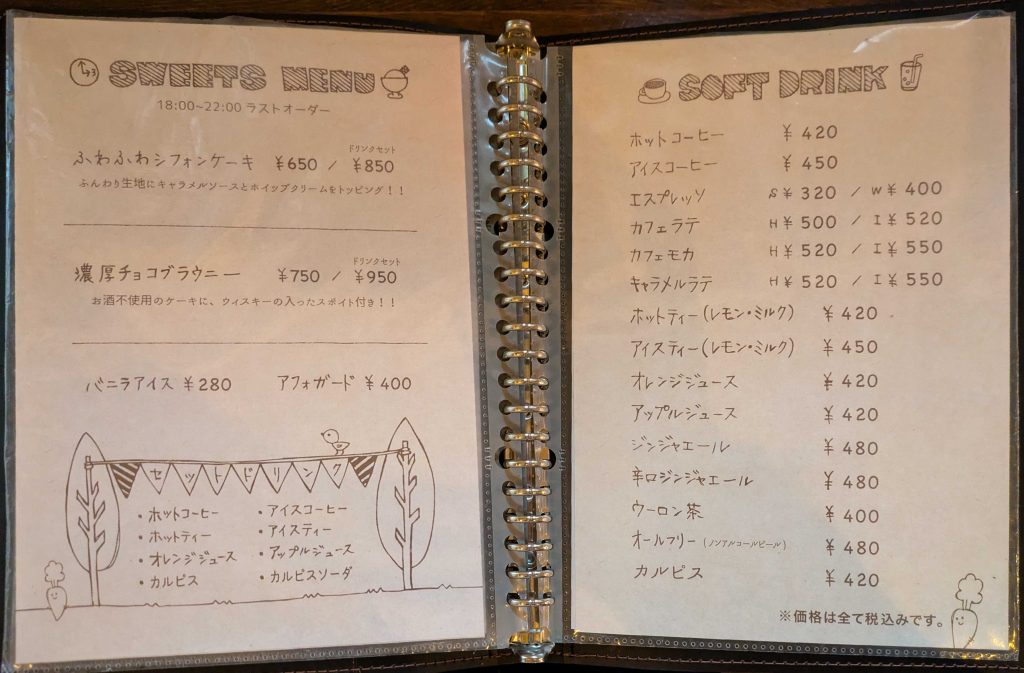 SWEETS MENU
18:00~22:00 ラストオーダー
ドリンクセット
ふわふわシフォンケーキ ¥650 / ¥850
ふんわり生地にキャラメルソースとホイップクリームをトッピング!!
ドリンクセット
濃厚チョコブラウニー ¥750 / ¥950
お酒不使用のケーキに、ウィスキーの入ったスポイト付き!!
バニラアイス ¥280 アフォガード ¥400
セットドリンク
・ホットコーヒー ・アイスコーヒー
・ホットティー ・アイスティー
・オレンジジュース ・アップルジュース
・カルピス ・カルピスソーダ
SOFT DRINK
ホットコーヒー ¥420
アイスコーヒー ¥450
エスプレッソ S¥320 / W¥400
カフェラテ H¥500 / I¥520
カフェモカ H¥520 / I¥550
キャラメルラテ H¥520 / I¥550
ホットティー(レモン・ミルク) ¥420
アイスティー(レモン・ミルク) ¥450
オレンジジュース ¥420
アップルジュース ¥420
ジンジャエール ¥480
辛口ジンジャエール ¥480
ウーロン茶 ¥400
オールフリー(ノンアルコールビール) ¥480
カルピス ¥420
※価格は全て税込みです。